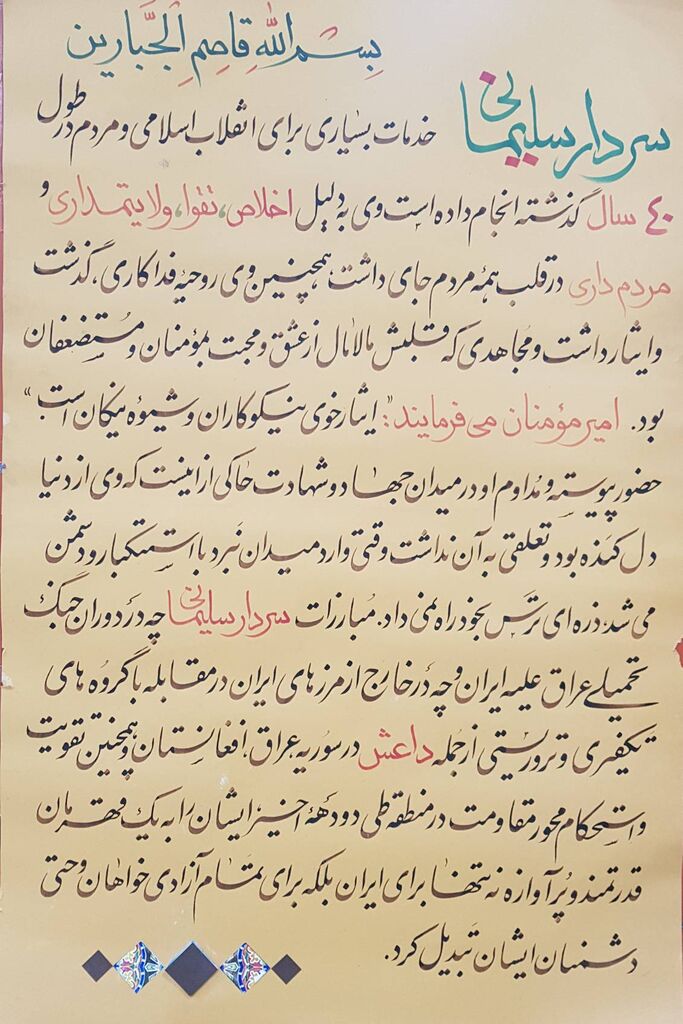 بِسْمِ اللّٰهِ قاصِمِ الْجَبّارین
سردار سلیمانی خدمات بسیاری برای انقلاب اسلامی و مردم در طول
۴۰ سال گذشته انجام داده است وی به دلیل اخلاص، تقوا، ولایتمداری و
مردم داری در قلب همه مردم جای داشت، همچنین وی روحیهٔ فداکاری، گذشت
و ایثار داشت و مجاهدی که قلبش مالامال از عشق و محبت بمؤمنان و مستضعفان
بود. امیر مؤمنان می فرمایند: "ایثار خوی نیکوکاران و شیوه نیکان است"
حضور پیوسته و مداوم او در میدان جهاد و شهادت حاکی از اینست که وی از دنیا
دل کنده بود و تعلقی به آن نداشت وقتی وارد میدان نبرد با استکبار و دشمن
می شد، ذره ای ترس بخود راه نمی داد. مبارزات سردار سلیمانی چه در دوران جنگ
تحمیلی عراق علیه ایران و چه در خارج از مرز های ایران در مقابله با گروه های
تکفیری و تروریستی از جمله داعش در سوریه، عراق، افغانستان و همچنین تقویت
و استحکام محور مقاومت در منطقه طی دو دههٔ اخیر ایشان را به یک قهرمان
قدرتمند و پرآوازه نه تنها برای ایران بلکه برای تمام آزادی خواهان و حتی
دشمنان ایشان تبدیل کرد.